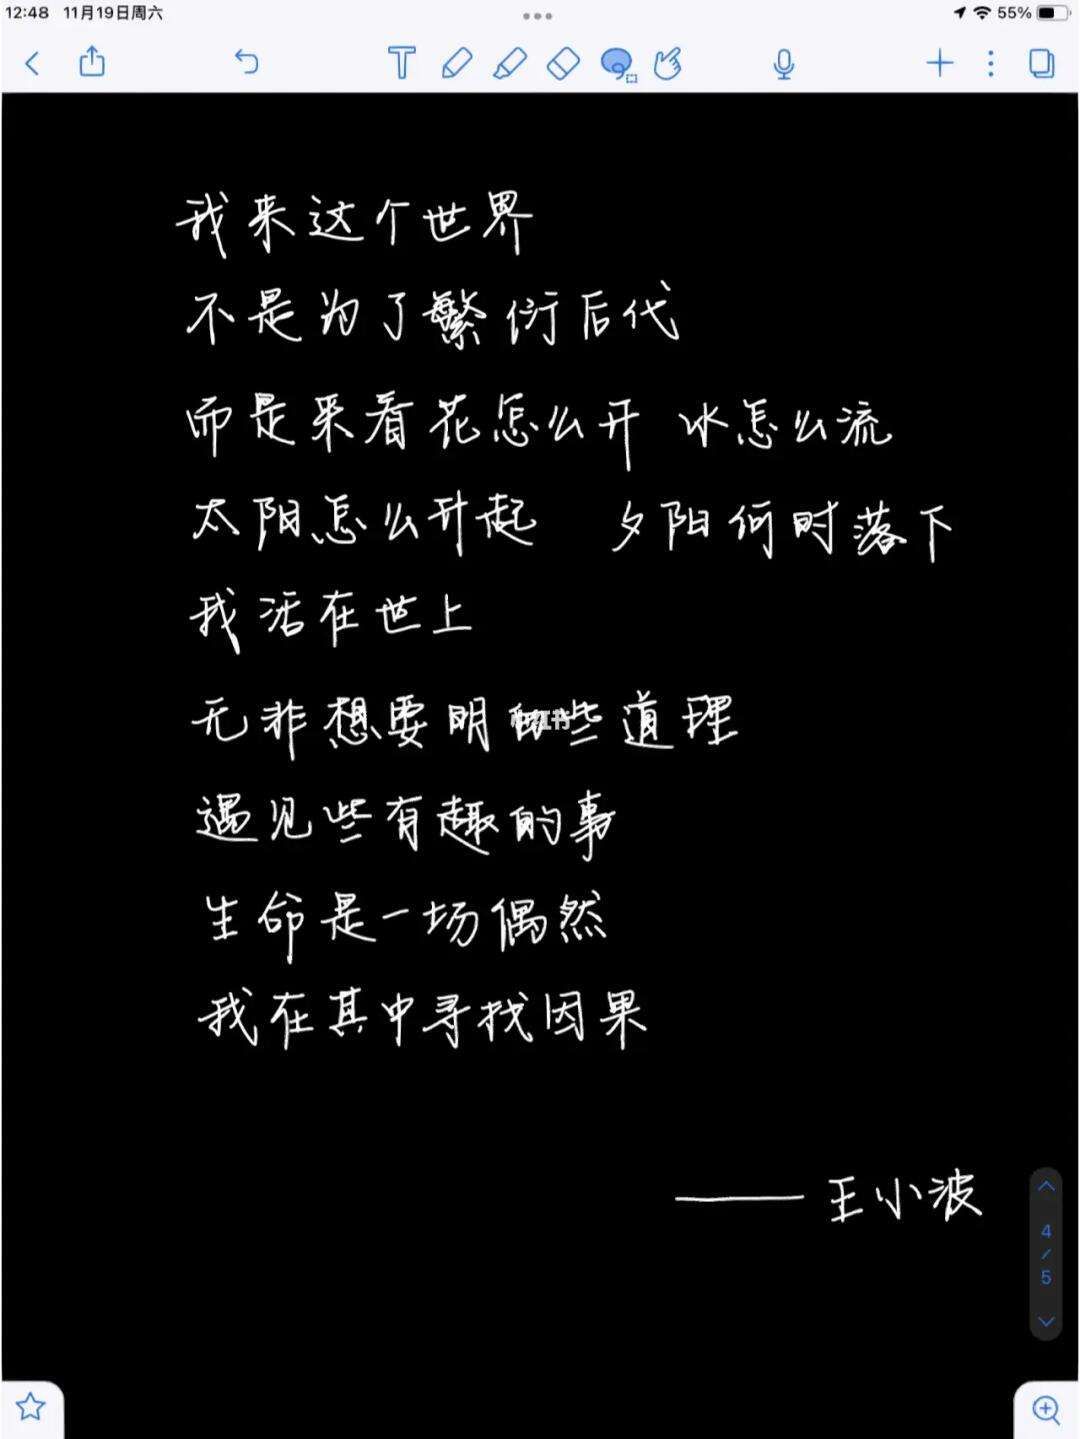 12:48 11月19日周六 55%
我来这个世界
不是为了繁衍后代
而是来看花怎么开 水怎么流
太阳怎么升起 夕阳何时落下
我活在世上
无非想要明白些道理
遇见些有趣的事
生命是一场偶然
我在其中寻找因果
——王小波
4/5
小红书